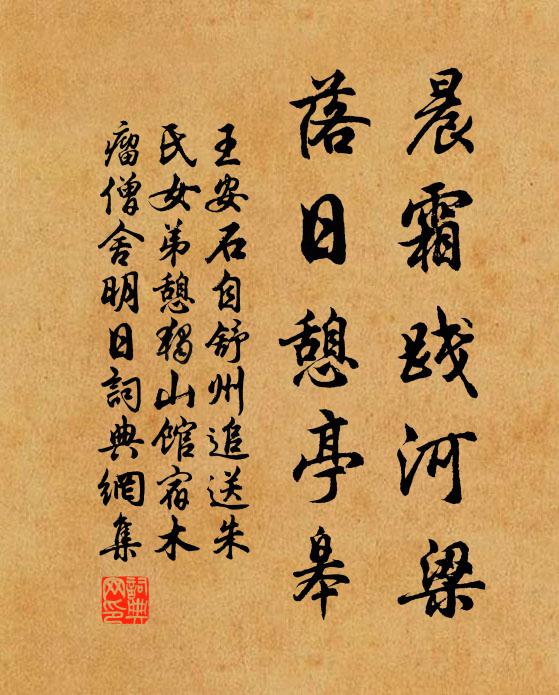 晨霜践河梁
落日憩亭皋
王安石自舒州追送朱
氏女弟憩独山馆宿木
瘤僧舍明日詞典網集
詞典
网印